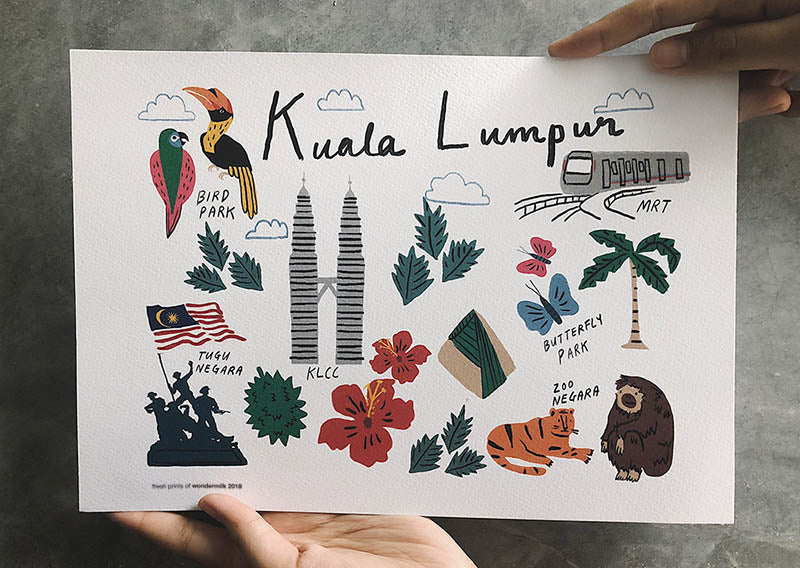 Kuala Lumpur
BIRD
PARK
MRT
BUTTERFLY
PARK
TUGU
NEGARA
KLCC
ZOO
NEGARA
fresh prints of wondermilk 2018